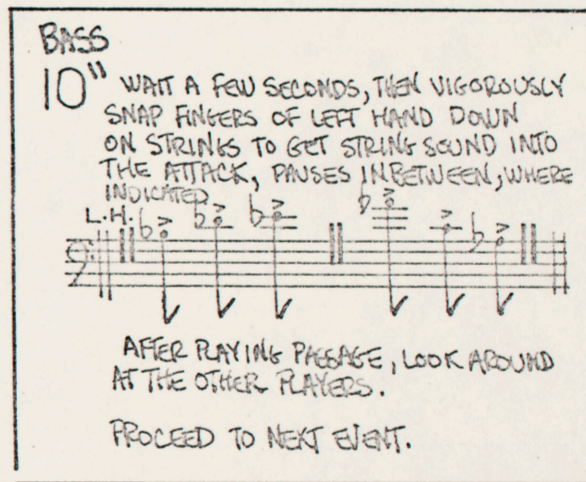 BASS
10" WAIT A FEW SECONDS, THEN VIGOROUSLY
SNAP FINGERS OF LEFT HAND DOWN
ON STRINGS TO GET STRING SOUND INTO
THE ATTACK, PAUSES INBETWEEN, WHERE
INDICATED
L.H.
AFTER PLAYING PASSAGE, LOOK AROUND
AT THE OTHER PLAYERS.
PROCEED TO NEXT EVENT.